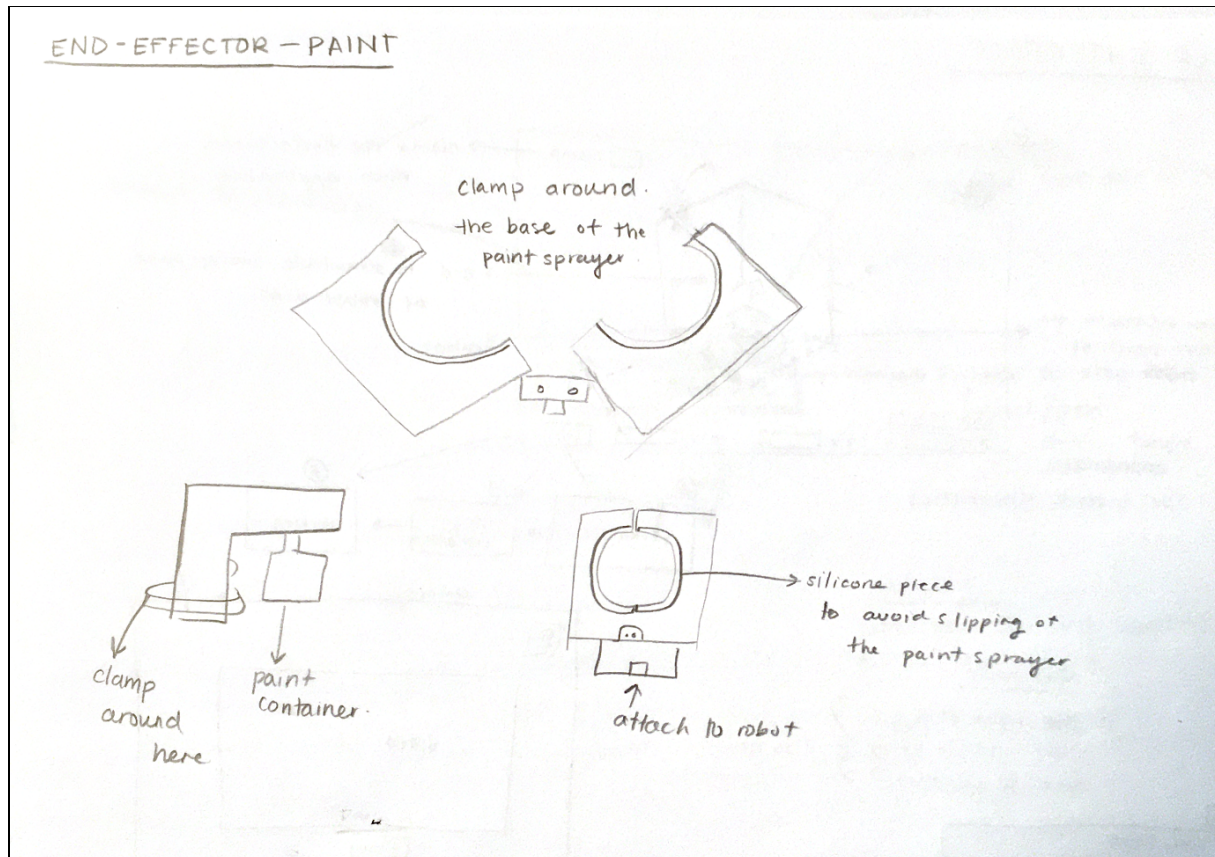 END-EFFECTOR-PAINT
clamp around.
the base of the
paint sprayer.
clamp
around
here
paint
container.
silicone piece
to avoid slipping of
the paint sprayer
attach to robot